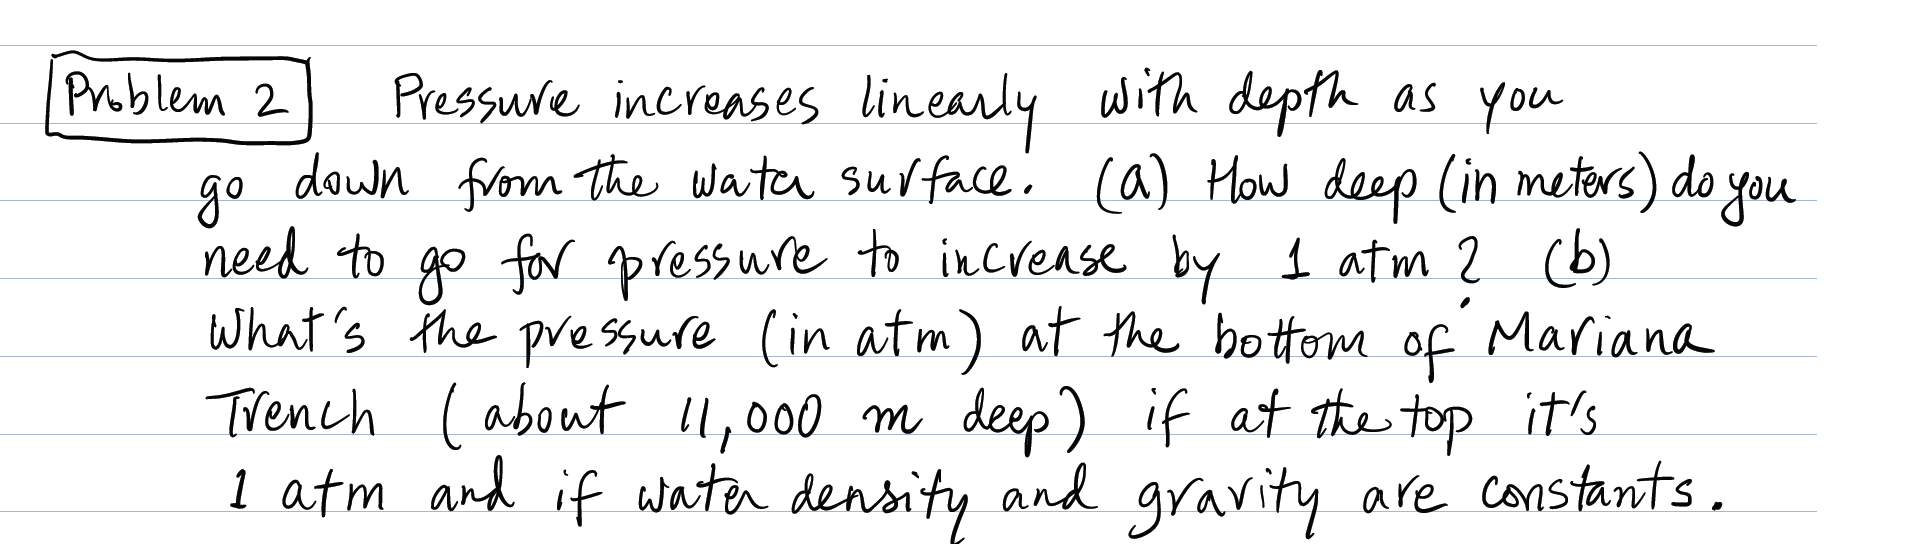 Problem 2 Pressure increases linearly with depth as you
go down from the water surface. (a) How deep (in meters) do you
need to go for pressure to increase by 1 atm? (b)
What's the pressure (in atm) at the bottom of Mariana
Trench (about 11,000 m deep) if at the top it's
1 atm and if water density and gravity are constants.